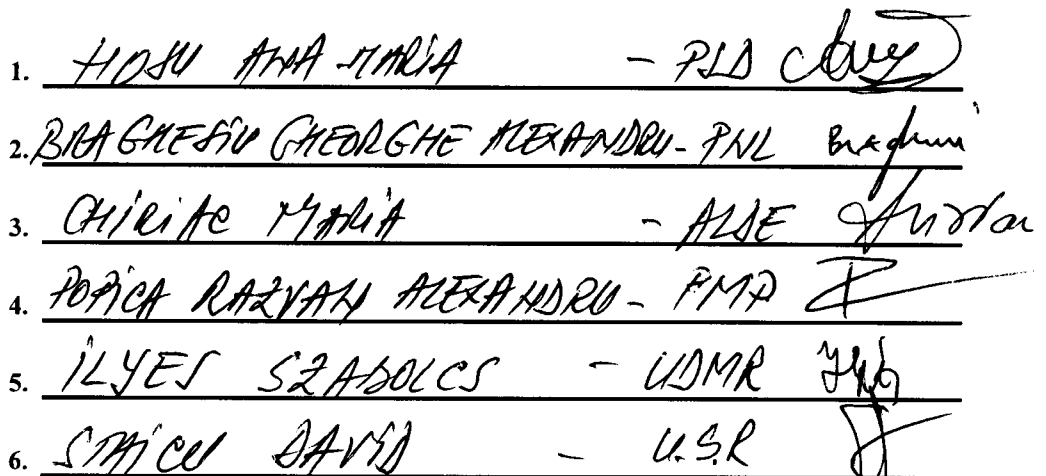 1. HOSU ANA MARIA - PSD
2. BRAGHESIU GHEORGHE ALEXANDRU - PNL
3. CHIRIAC MARIA - ALDE
4. POPICA RAZVAN ALEXANDRU - PMP
5. ILYES SZABOLCS - UDMR
6. STAICU DAVID - U.S.R